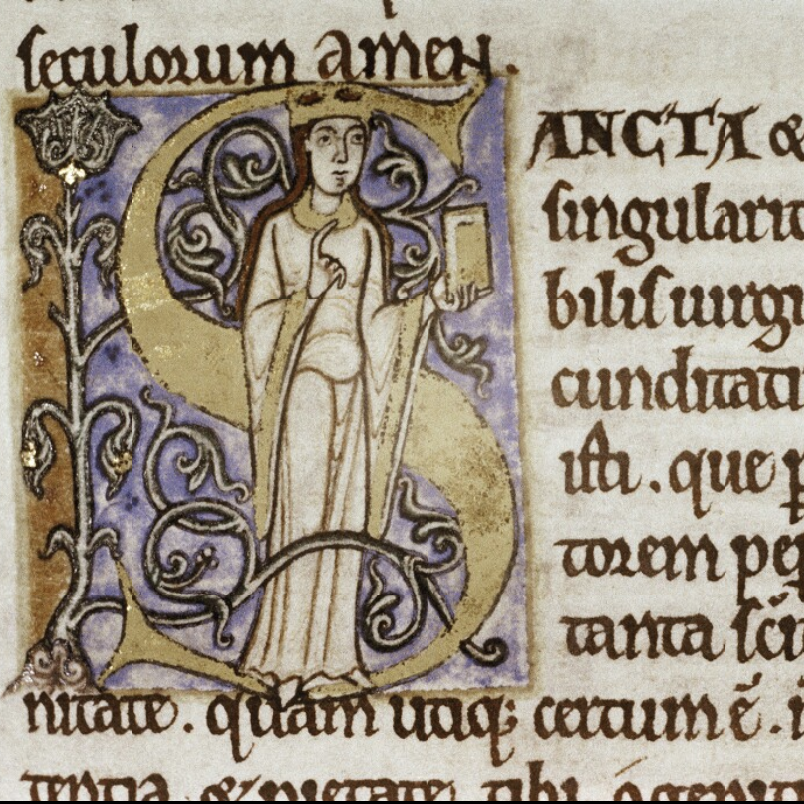 seculorum amen.
SANCTA &
singularit
bilis uirgi
cunditati
isti. que p
torem pep
tanta sc̄i
nitate. quam utiq; certum ē. i
tentia. & pietate tibi